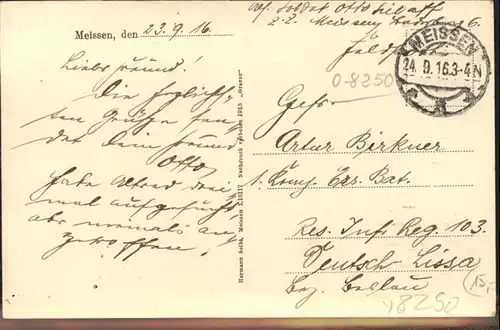 Meissen, den 23.9.16
Lieber Freund!
Die herzlichs-
ten Grüße sen-
det dein Freund
Otto
habe Alfred drei
mal aufgesucht
aber niemals an
getroffen!
Hermann Seibt, Meissen Nachdruck verboten 1913
Soldat Otto
z. Z. Meissen
MEISSEN
24.9.16.3-4N
0-8250
Artur Birkner
1. Komp. Ers. Bat.
Res. Inf. Reg. 103.
Deutsch-Lissa
Bez. Breslau
8250